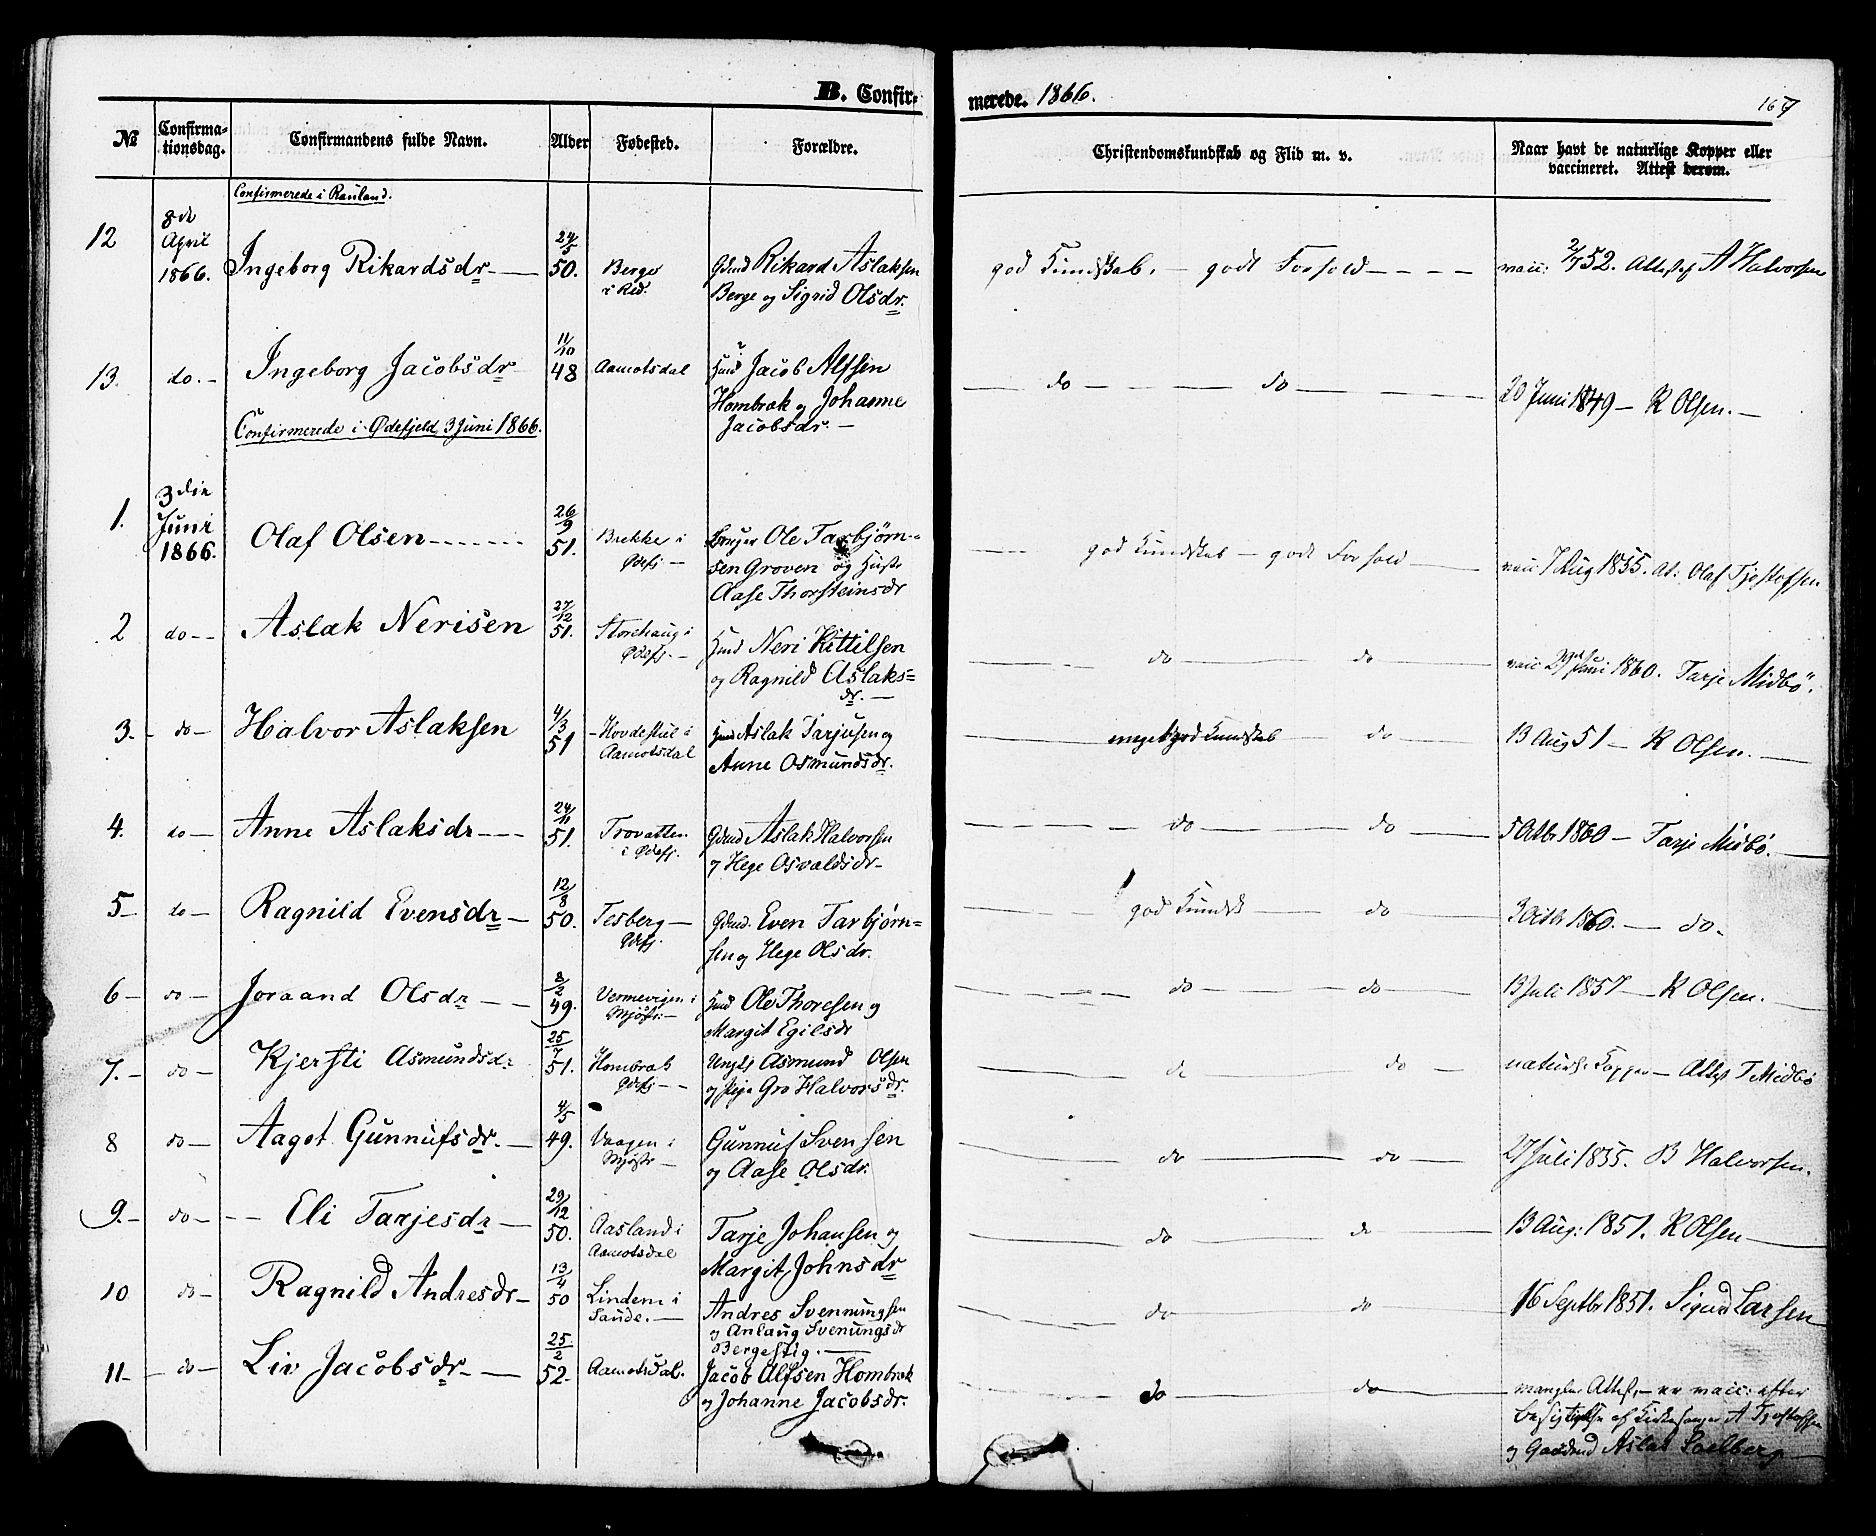 B. Confir- merede. 1866.
167
No Confirma-tionsdag. Confirmandens fulde Navn. Alder Fødested. Forældre. Christendomskundskab og Flid m. v. Naar havt de naturlige Kopper eller vaccineret. Attest derom.
Confirmerede i Rauland.
12 8de April 1866. Ingeborg Rikardsdr 24/5 50. Berge i Rld. Gdmd Rikard Aslaksen Berge og Sigrid Olsdr. god Kundskab. – godt Forhold vacc: 2/7 52. Attest af A Halvorsen
13. do. Ingeborg Jacobsdr 11/10 48 Aamotsdal Hmd Jacob Alfsen Hombrak og Johanne Jacobsdr. do do 20 Juni 1849 – K Olsen.
Confirmerede i Ødefjeld 3 Juni 1866.
1. 3die Juni 1866. Olaf Olsen 26/9 51. Brekke i Ødefj. Bruger Ole Tarbjørn=sen Groven og Hustr Aase Thorsteinsdr god Kundskab – godt Forhold vacc 7 Aug 1855. At: Olaf Tjostofsen
2 do Aslak Nerisen 27/12 51. Storehaug i Ødefj. Hmd Neri Kittilsen og Ragnild Aslaks=dr. do do vacc Juni 1860. Tarje Midbö.
3. do Halvor Aslaksen 4/3 51 Hovdestul i Aamotsdal Hmd Aslak Tarjusen og Anne Osmundsdr. meget god Kundskab do 13 Aug 51 – K Olsen.
4. do Anne Aslaksdr 24/11 51. Trovatten i Ødefj. Gdmd Aslak Halvorsen og Hege Osvaldsdr do do 5 Octbr 1860 – Tarje Midbö.
5 do Ragnild Evensdr 12/8 50. Tesberg Ødefj. Gdmd. Even Tarbjørn=sen og Hege Olsdr. god Kundsk do 3 Octbr 1860. – do.
6 do Joraand Olsdr 8/2 49. Vermevigen i Mjøstr. Hmd Ole Thoresen og Margit Egilsdr do do 13 Juli 1857 – K Olsen.
7. do Kjersti Asmundsdr 25/7 51. Hombrak Ødefj Ungk Asmund Olsen og Pige Gro Halvorsdr. do do naturl. Kopper – Attest T Midbö
8 do Aagot Gunnufsdr. 4/5 49. Vaagen i Mjøstr Gunnuf Svensen og Aase Olsdr. do do 27 Juli 1855. B Halvorsen.
9. do Eli Tarjesdr 29/12 50. Aasland i Aamotsdal Tarje Johansen og Margit Johnsdr do do 13 Aug: 1851. K Olsen
10 do Ragnild Andresdr 13/4 50 Lindem i Saude. Andres Svenningsen og Anlaug Svenungsdr Bergestig. do do 16 Septbr 1851. Sigurd Larsen
11 do Liv Jacobsdr 25/2 52. Aamotsdal. Jacob Alfsen Hombrak og Johanne Jacobsdr. do do mangler Attest, – er vacc: efter Besigtigelse af Kirkesanger A Tjostofsen og Gaardmd Aslak Loelberg